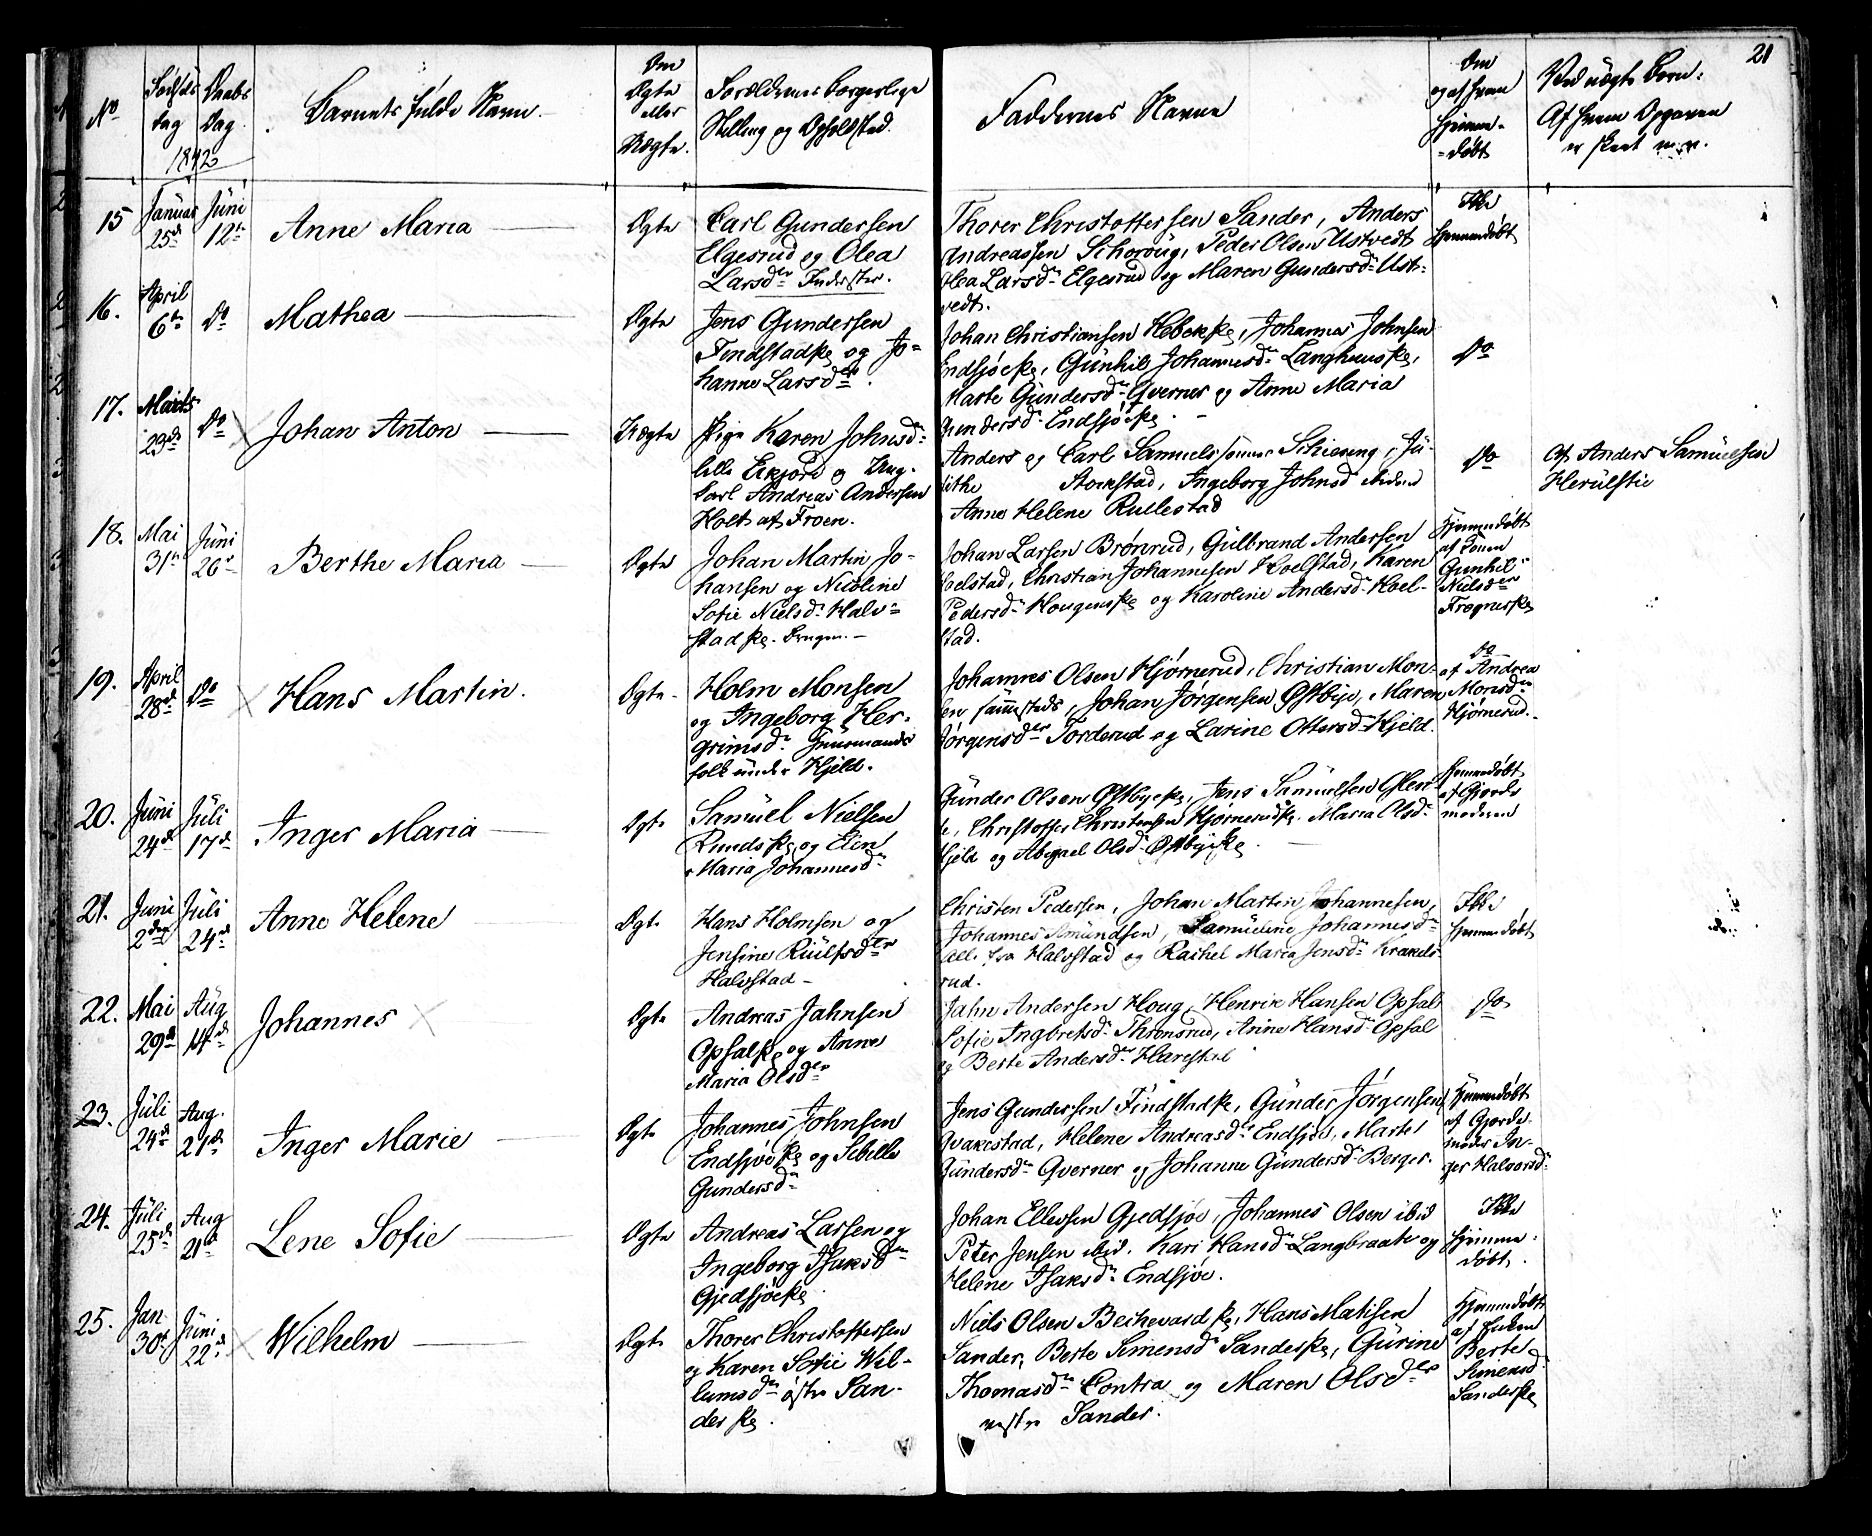 21
No
Fødsels
dag
Daabs
Dag
1842
Barnets fulde Navn.
Om
Ægte
eller
Uægte.
Forældrenes borgerlige
Stilling og Opholdsted.
Faddernes Navne
Om
og af hvem
hjemme-
døbt
Ved uægte Børn:
Af hvem Opgaven
er skeet
15
Januar
25de
Juni
12te
Anne Maria
Ægte
Carl Gundersen
Elgesrud og Olea
Larsdtr Inderster.
Thorer Christoffersen Sander, Anders
Andreassen Schoroug, Peder Olsen Ustvedt
Olea Larsd. Elgesrud og Maren Gundersd. Ust-
vedt.
Ikke
hjemmedøbt
16.
April
6te
Do
Mathea
Ægte
Jens Gundersen
Findstadske og Jo-
hanne Larsdtr.
Johan Christiansen Hebekke, Johannes Johnsen
Endsjøeske, Gunhil Johannesd. Langhuuske,
Marte Gundersd. Qverner og Anne Maria
Gundersd. Endsjøeske
Do
17.
Marts
29de
Do
Johan Anton
Uægte
Pige Karen Johnsd.
lille Eikjord og Ung.
Carl Andreas Andersen
Holt af Froen.
Anders og Carl Samuelssønner Schieseng, Ju-
lithe Stockstad, Ingeborg Johnsd
Anne Helene Rullestad
Do
Af Anders Samuelsen
Herulstie
18.
Mai
31te
Juni
26de
Berthe Maria
Ægte
Johan Martin Jo-
hansen og Nicoline
Sofie Nielsd. Halv-
stadske.
Johan Larsen Brønrud, Gulbrand Andersen
Hoelstad, Christian Johannesen Hoelstad, Karen
Pedersd. Hougenske og Karoline Andersd. Hoel-
stad.
Hjemmedøbt
af Konen
Gunhil
Nielsdtr
Frognerske
19.
April
28de
Do
Hans Martin.
Ægte
Holm Monsen
og Ingeborg Her-
grimsd.
folk under Hjeld.
Johannes Olsen Hjørnerud, Christian Mon-
sen sammesteds, Johan Jørgensen Østbye, Maren
Jørgensdtr Torderud og Larine Ottersd. Hjeld.
Do
af Andrea
Monsd.
Hjørnerud.
20.
Juni
24de
Juli
17de
Inger Maria
Ægte
Samuel Nielsen
Rundske og Elin
Maria Johannesd.
Gunder Olsen Østbyeske, Jens Samuelsen Glen-
ne, Christoffer Christensen Hjørnerudske. Maria Olsd.
Hjeld og Abegael Olsd. Østbyeske
Hjemmedøbt
af Gjorde
moderen
21.
Juni
2den
Juli
24de
Anne Helene
Ægte
Hans Holmsen og
Jensine Ruulfsdtr
Halvstad
Christen Pedersen, Johan Martin Johannesen,
Johannes Amundsen, Samueline Johannesd.
alle fra Halvstad og Rachel Maria Jensd. Krakels-
rud.
Ikke
hjemmedøbt
22.
Mai
29de
Aug
14de
Johannes
Ægte
Andreas Jahnsen
Opsalske og Anne
Maria Olsdtr
Jahn Andersen Houg, Henrik Hansen Opsal
Sofie Ingbretsd. Thronsrud, Anne Hansd. Opsal
og Berte Andersd. Harestad
Do
23.
Juli
24de
Aug.
21de
Inger Marie
Ægte
Johannes Johnsen
Endsjøeske og Sibille
Gundersd.
Jens Gundersen Findstadske, Gunder Jørgensen
Qvakestad, Helene Andreasd. Endsjøe, Marte
Gundersd. Qverner og Johanne Gundersd. Berger.
Hjemmedøbt
af Gjorde-
moder In-
ger Halvorsd.
24.
Juli
25de
Aug
21de
Lene Sofie
Ægte
Andreas Larsen og
Ingeborg Isaksdtr
Gjedsjøeske
Johan Ellevsen Gjedsjøe, Johannes Olsen ibid
Peter Jensen ibid. Kari Hansd. Langbraate og
Helene Isaksd. Endsjøe.
Ikke
hjemme-
døbt.
25.
Jan
30te
Juni
22de
Wilhelm
Ægte
Thorer Christoffersen
og Karen Sofie Wil-
lumsd. østre San-
derske.
Niels Olsen Bechevardske, Hans Matisen
Sander, Berte Simensd. Sanderske, Gurine
Thomasd. Contra og Maren Olsdtr
vestre Sander.
Hjemmedøbt
af
Berte
Simensd.
Sanderske